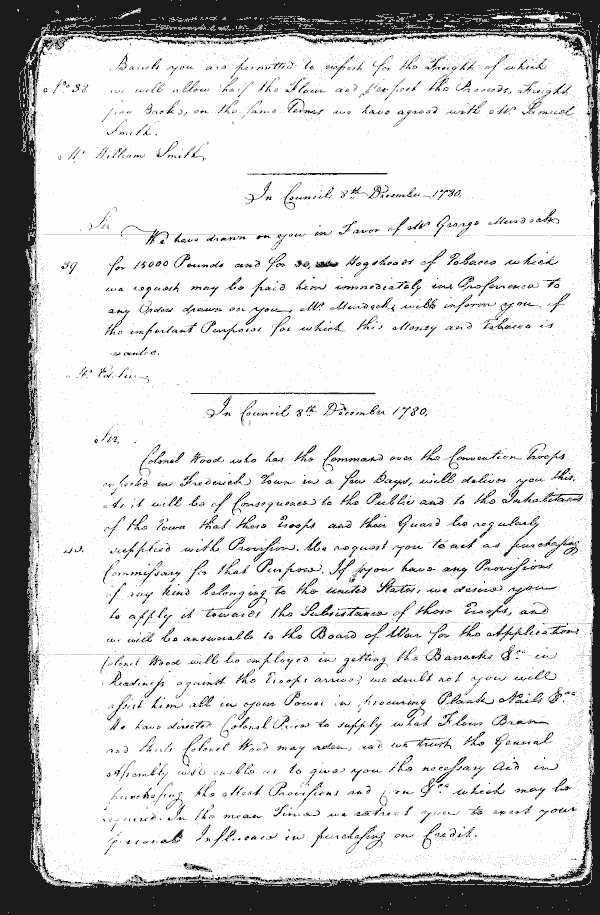 Barrels you are permitted to export for the Freight of which
No 38. we will allow half the Flour and export the Proceeds, Freight
free Back, on the same Terms we have agreed with Mr Samuel
Smith.
Mr William Smith
In Council 8th December 1780.
Sir.
We have drawn on you in Favor of Mr George Murdock
39. for 15000 Pounds and for 30, Hogsheads of Tobacco which
we request may be paid him immediately in Preferrence to
any Orders drawn on you Mr Murdock will inform you of
the important Purposes for which this Money and Tobacco is
wanted.
Mr
In Council 8th December 1780.
Sir.
Colonel Wood who has the Command over the Convention Troops
expected in Frederick Town in a few Days, will deliver you this.
As it will be of Consequence to the Public and to the Inhabitants
of the Town that these Troops and their Guard be regularly
supplied with Provision. We request you to act as purchasing
Commissary for that Purpose. If you have any Provisions
of any kind belonging to the united States, we desire you
to apply it towards the Subsistance of those Troops, and
we will be answerable to the Board of War for the Application
Colonel Wood will be employed in getting the Barracks &ca in
Readiness against the Troops arrive, we doubt not you will
assist him all in your Power in procuring Plank Nails &ca
We have directed Colonel Price to supply what Flour Bran
and Colonel Wood may order, and we trust the General
Assembly will enable us to give you the necessary Aid in
purchasing the Meat Provisions and Corn &ca which may be
required. In the mean Time we entreat you to exert your
personal Influence in purchasing on Credit.